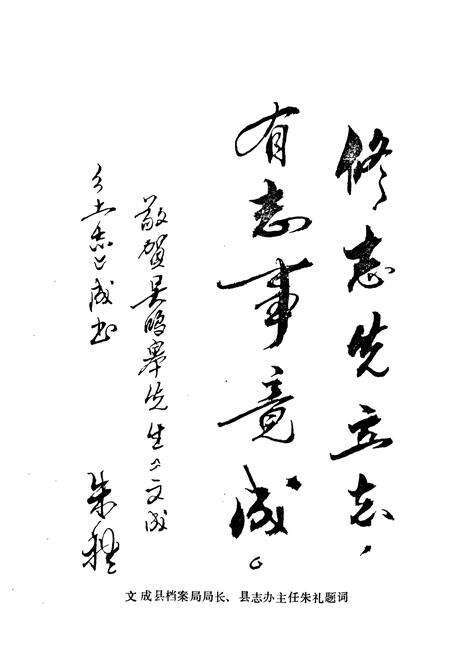 修志先立志，
有志事竟成。
敬贺吴鸣皋先生《文成
乡土志》成书
朱礼
文成县档案局局长、县志办主任朱礼题词